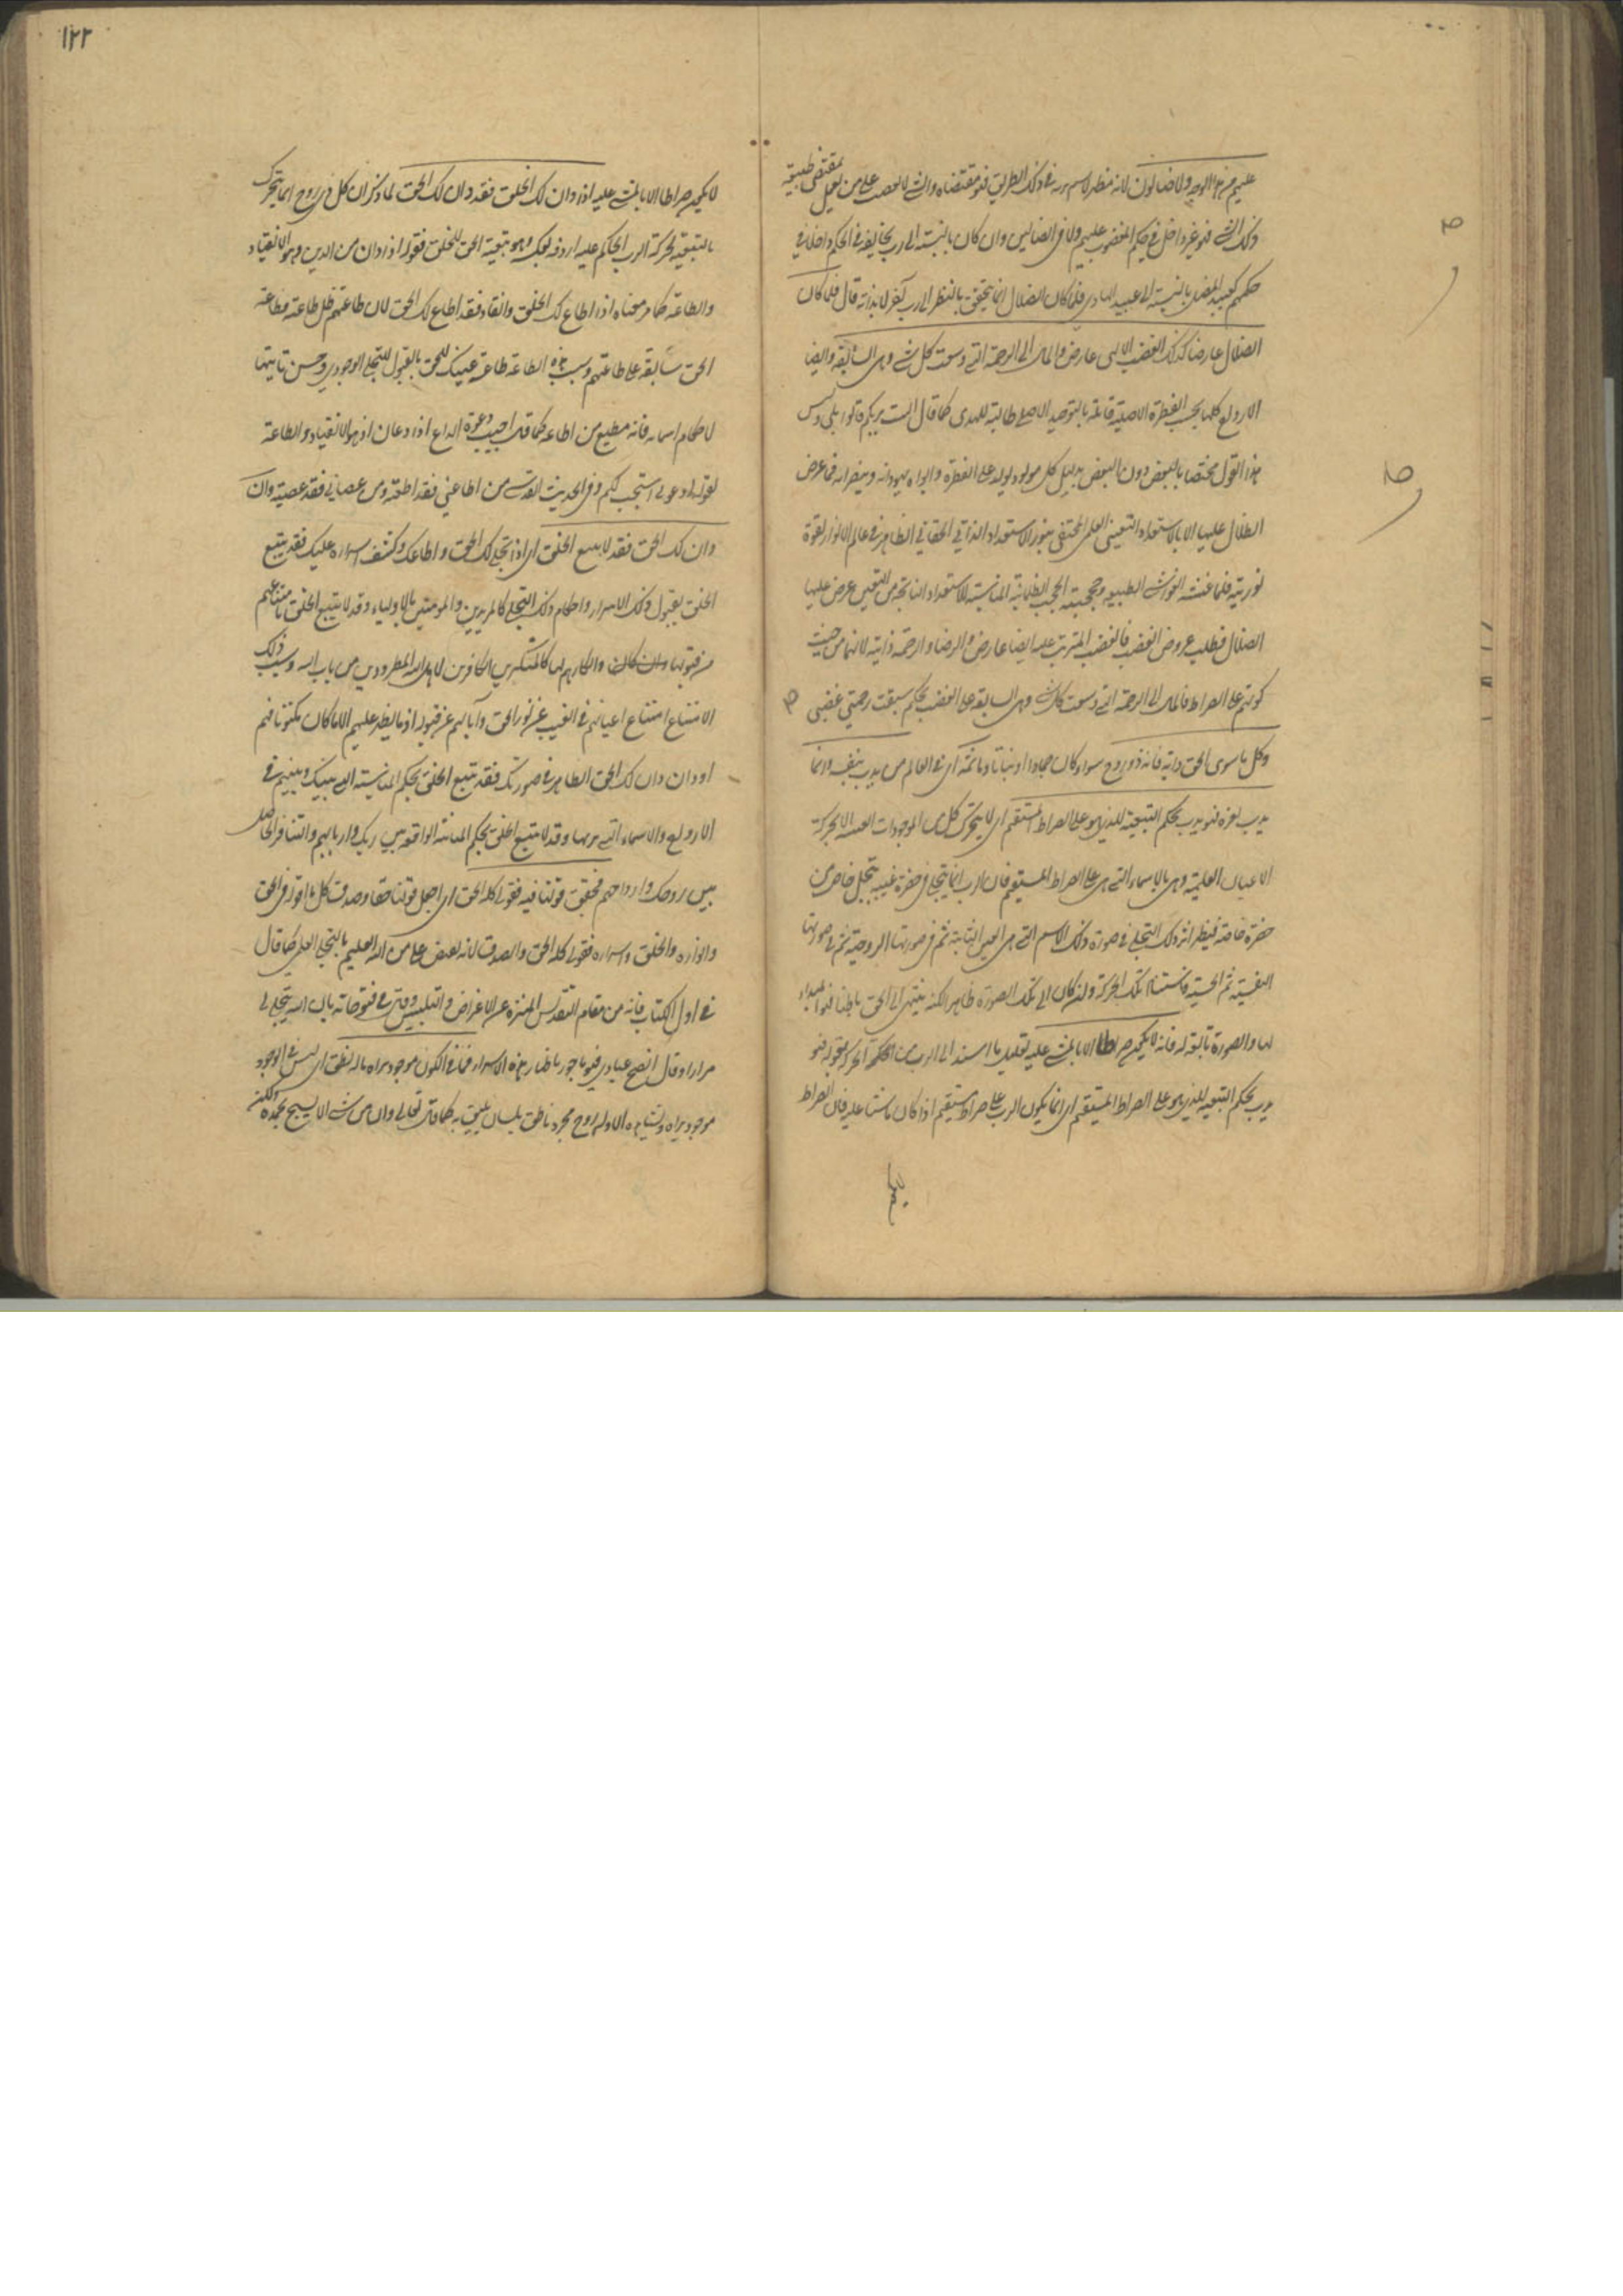 عليهم من هذا الوجه ولا ضالون لانه مظهر لاسم ربه في ذلك الطريق فهو مقتضاه والشي لا يغضب على من يعمل بمقتضى طبيعته
ذلك الشي فهو غير داخل في حكم المغضوب عليهم ولا في الضالين وان كان بالنسبة الى رب يخالفه في الحكم داخلا في
حكمهم كعبيد المضل بالنسبة الى عبيد الهادي فلما كان الضلال انما يتحقق بالنظر الى رب آخر لا بذاته قال فكما كان
الضلال عارضا كذلك الغضب الالهي عارض والمآل الى الرحمة التي وسعت كل شي وهي السابقة وايضا
الارواح كلها بحسب الفطرة الاصلية قائلة بالتوحيد الاصلي طالبة للهدى كما قال الست بربكم قالوا بلى وليس
هذا القول مختصا بالبعض دون البعض بدليل كل مولود يولد على الفطرة وابواه يهودانه وينصرانه فما عرض
الضلال عليها الا بالاستعداد التعيني العلمي المختفي بنور الاستعداد الذاتي الحقاني الظاهر في عالم الانوار لقوة
نوريته فلما غشته الغواشي الطبيعية وحجبته الحجب الظلمانية المناسبة للاستعداد الناتجة من التعين عرض عليها
الضلال فطلب عروض الغضب فالغضب المترتب عليه ايضا عارض والرضا والرحمة ذاتية لانهما من حيث
كونهم على الصراط فالمآل الى الرحمة التي وسعت كل شي وهي السابقة على الغضب بحكم سبقت رحمتي غضبي
وكل ما سوى الحق دابة فانه ذو روح سواء كان جمادا او نباتا وما ثمة اي في العالم من يدب بنفسه وانما
يدب لغيره فهو يدب بحكم التبعية للذي هو على الصراط المستقيم اي لا يتحرك كل من الموجودات العينية الا بحركة
الاعيان العلمية وهي بالاسماء التي هي على الصراط المستقيم فان الرب انما يتجلى في حضرة غيبية بتجل خاص من
حضرة خاصة فيظهر اثر ذلك التجلي في صورة ذلك الاسم التي هي العين الثابتة ثم في صورتها الروحية ثم في صورتها
النفسية ثم الحسية فاستناد تلك الحركة وان كان الى تلك الصورة ظاهرا لكنه ينتهي الى الحق باطنا فهو المبداء
لها والصورة تابعة له فانه لا يكون صراطا الا بالمشي عليه تعليل ما اسند الى الرب من الحركة بقوله فهو
يدب بحكم التبعية للذي هو على الصراط المستقيم اي انما يكون الرب على صراط مستقيم اذا كان ماشيا عليه فان الصراط
١٢٢
لا يكون صراطا الا بالمشي عليه اذا دان لك الخلق فقد دان لك الحق لما ذكر ان كل ذي روح انما يتحرك
بالتبعية لحركة الرب الحاكم عليه اردفه بعكسه وهو تبعية الحق للخلق فقوله اذا دان من الدين وهو الانقياد
والطاعة كما مر معناه اذا اطاع لك الخلق وانقاد فقد اطاع لك الحق لان طاعتهم ظل طاعته وطاعة
الحق سابقة على طاعتهم وسبب هذه الطاعة طاعة عينك للحق بالقبول للتجلي الوجودي وحسن تأتيها
لاحكام اسمائه فانه مطيع من اطاعه كما قال اجيب دعوة الداع اذا دعان اذ هو الانقياد والطاعة
لقوله ادعوني استجب لكم وفي الحديث القدسي من اطاعني فقد اطعته ومن عصاني فقد عصيته وان
دان لك الحق فقد لا يتبع الخلق اي اذا تجلى لك الحق واطاعك وكشف اسراره عليك فقد يتبع
الخلق بقبول ذلك الاسرار واحكام ذلك التجلي كالمريدين والمؤمنين بالاولياء وقد لا يتبع الخلق لامتناعهم
من قبولها وانكارهم لها كالمنكرين الكافرين لاهل الله المطرودين من باب الله وسبب ذلك
الامتناع امتناع اعيانهم في الغيب عن نور الحق وآبائهم عن قبوله اذ ما يظهر عليهم الا ما كان مكنونا فيهم
او وان دان لك الحق الظاهر في صورتك فقد يتبع الخلق بحكم المناسبة التي بينك وبينهم في
الارواح والاسماء التي تربها وقد لا يتبع الخلق بحكم المباينة الواقعة بين ربك واربابهم والتنافر الحاصل
بين روحك وارواحهم فحقق قولنا فيه فقولي كله الحق اي اجعل قولنا حقا وصدق كل ما اقوله في الحق
وانواره والخلق واسراره فقولي كله الحق والصدق لانه يفيض علي من الله العليم بالتجلي العلمي كما قال
في اول الكتاب فانه من مقام التقديس المنزه عن الاغراض والتلبيس وقال في فتوحاته بان الله يتجلى لي
مرارا وقال انصح عبادي فهو مأجور باظهار هذه الاسرار فما في الكون موجود تراه ما له نطق اي ليس في الوجود
موجود تراه وتشاهده الا وله روح مجرد ناطق بلسان يليق به كما قال تعالى وان من شي الا يسبح بحمده ولكن